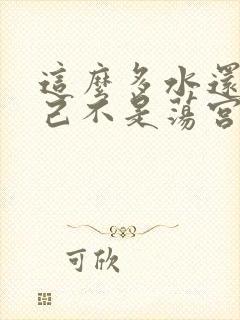 這麼多水還
己不是蕩宮
可欣